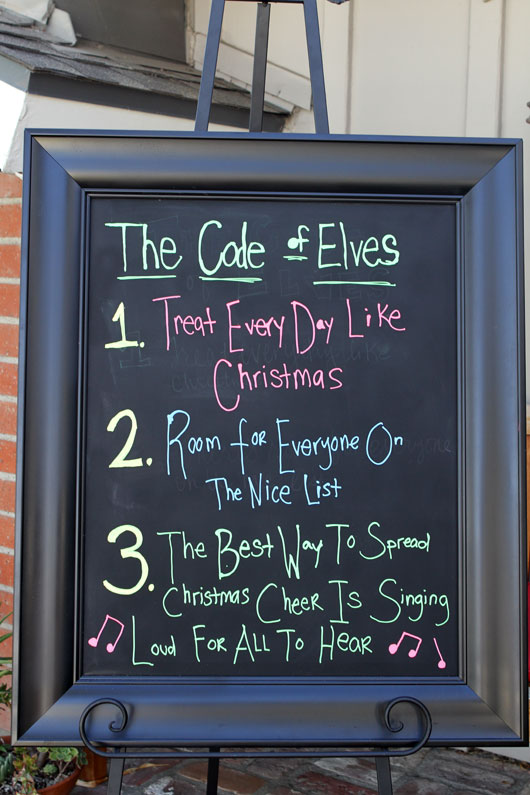 The Code of Elves
1. Treat Every Day Like
Christmas
2. Room for Everyone On
The Nice List
3. The Best Way To Spread
Christmas Cheer Is Singing
Loud For All To Hear